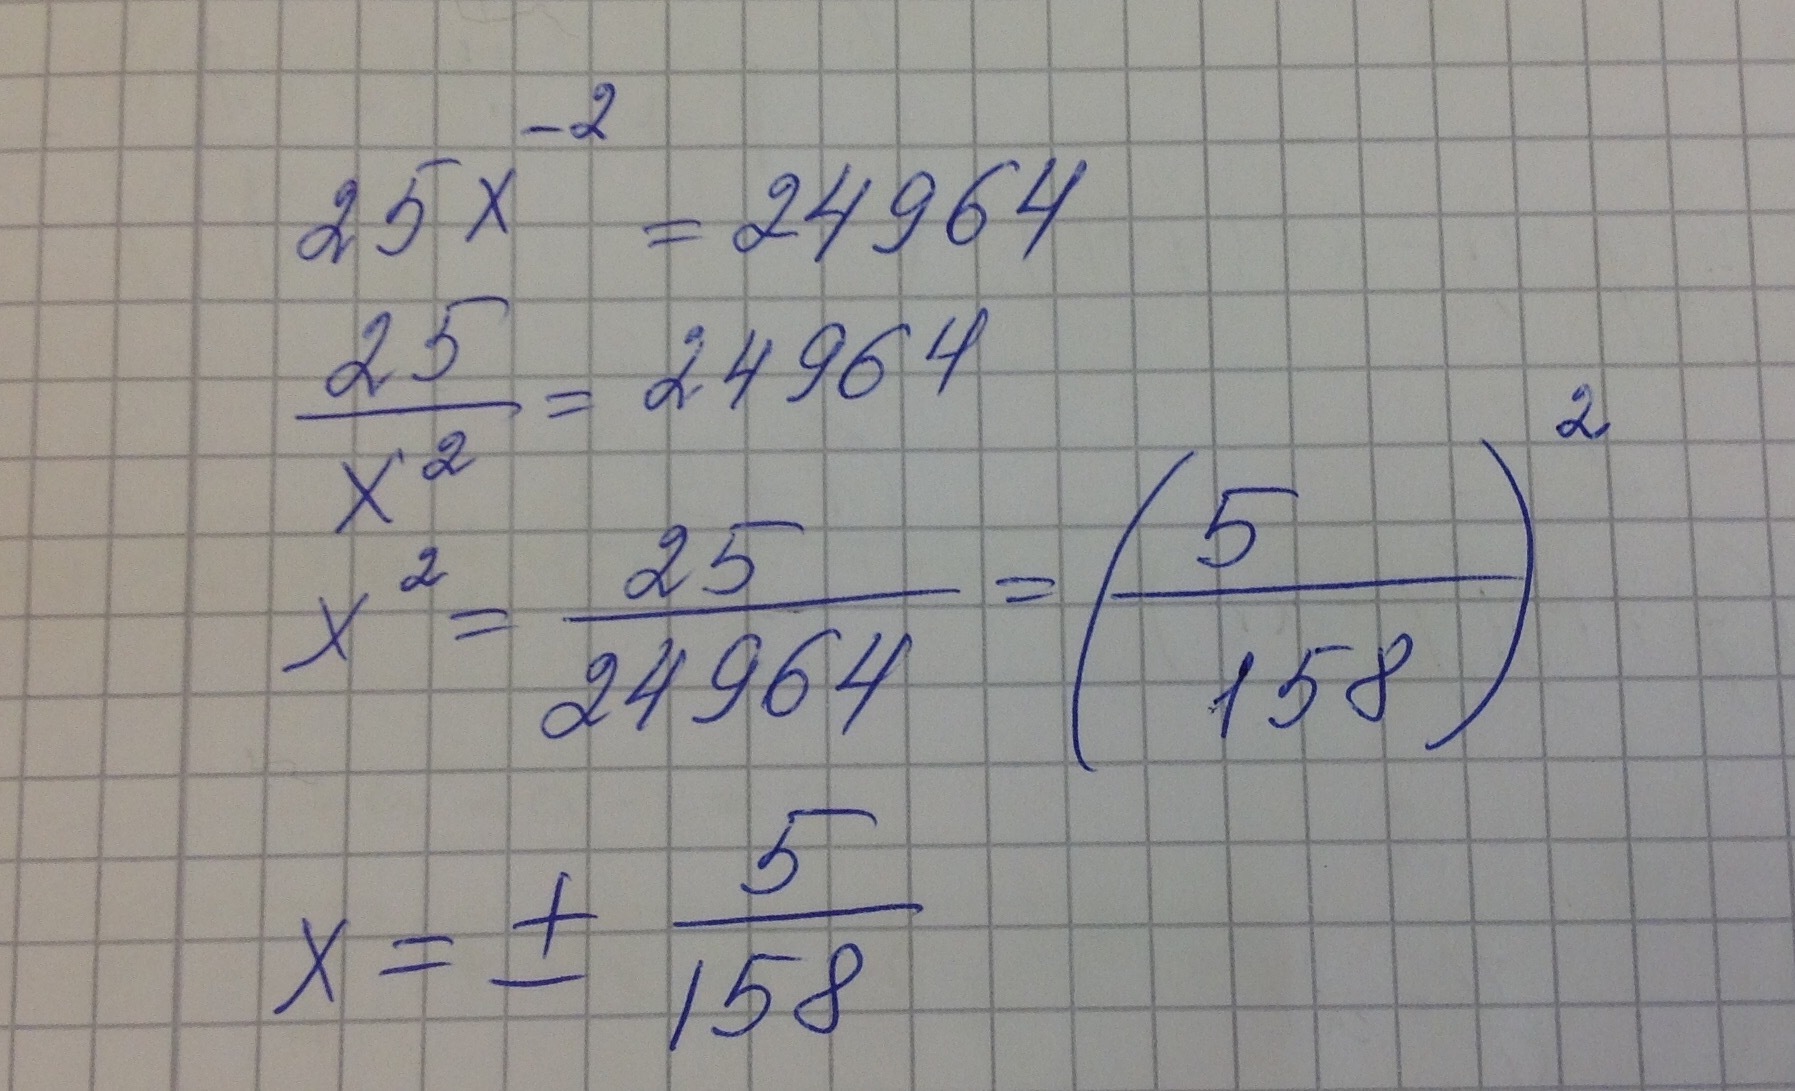 25x⁻² = 24964
25/x² = 24964
x² = 25/24964 = (5/158)²
x = ± 5/158